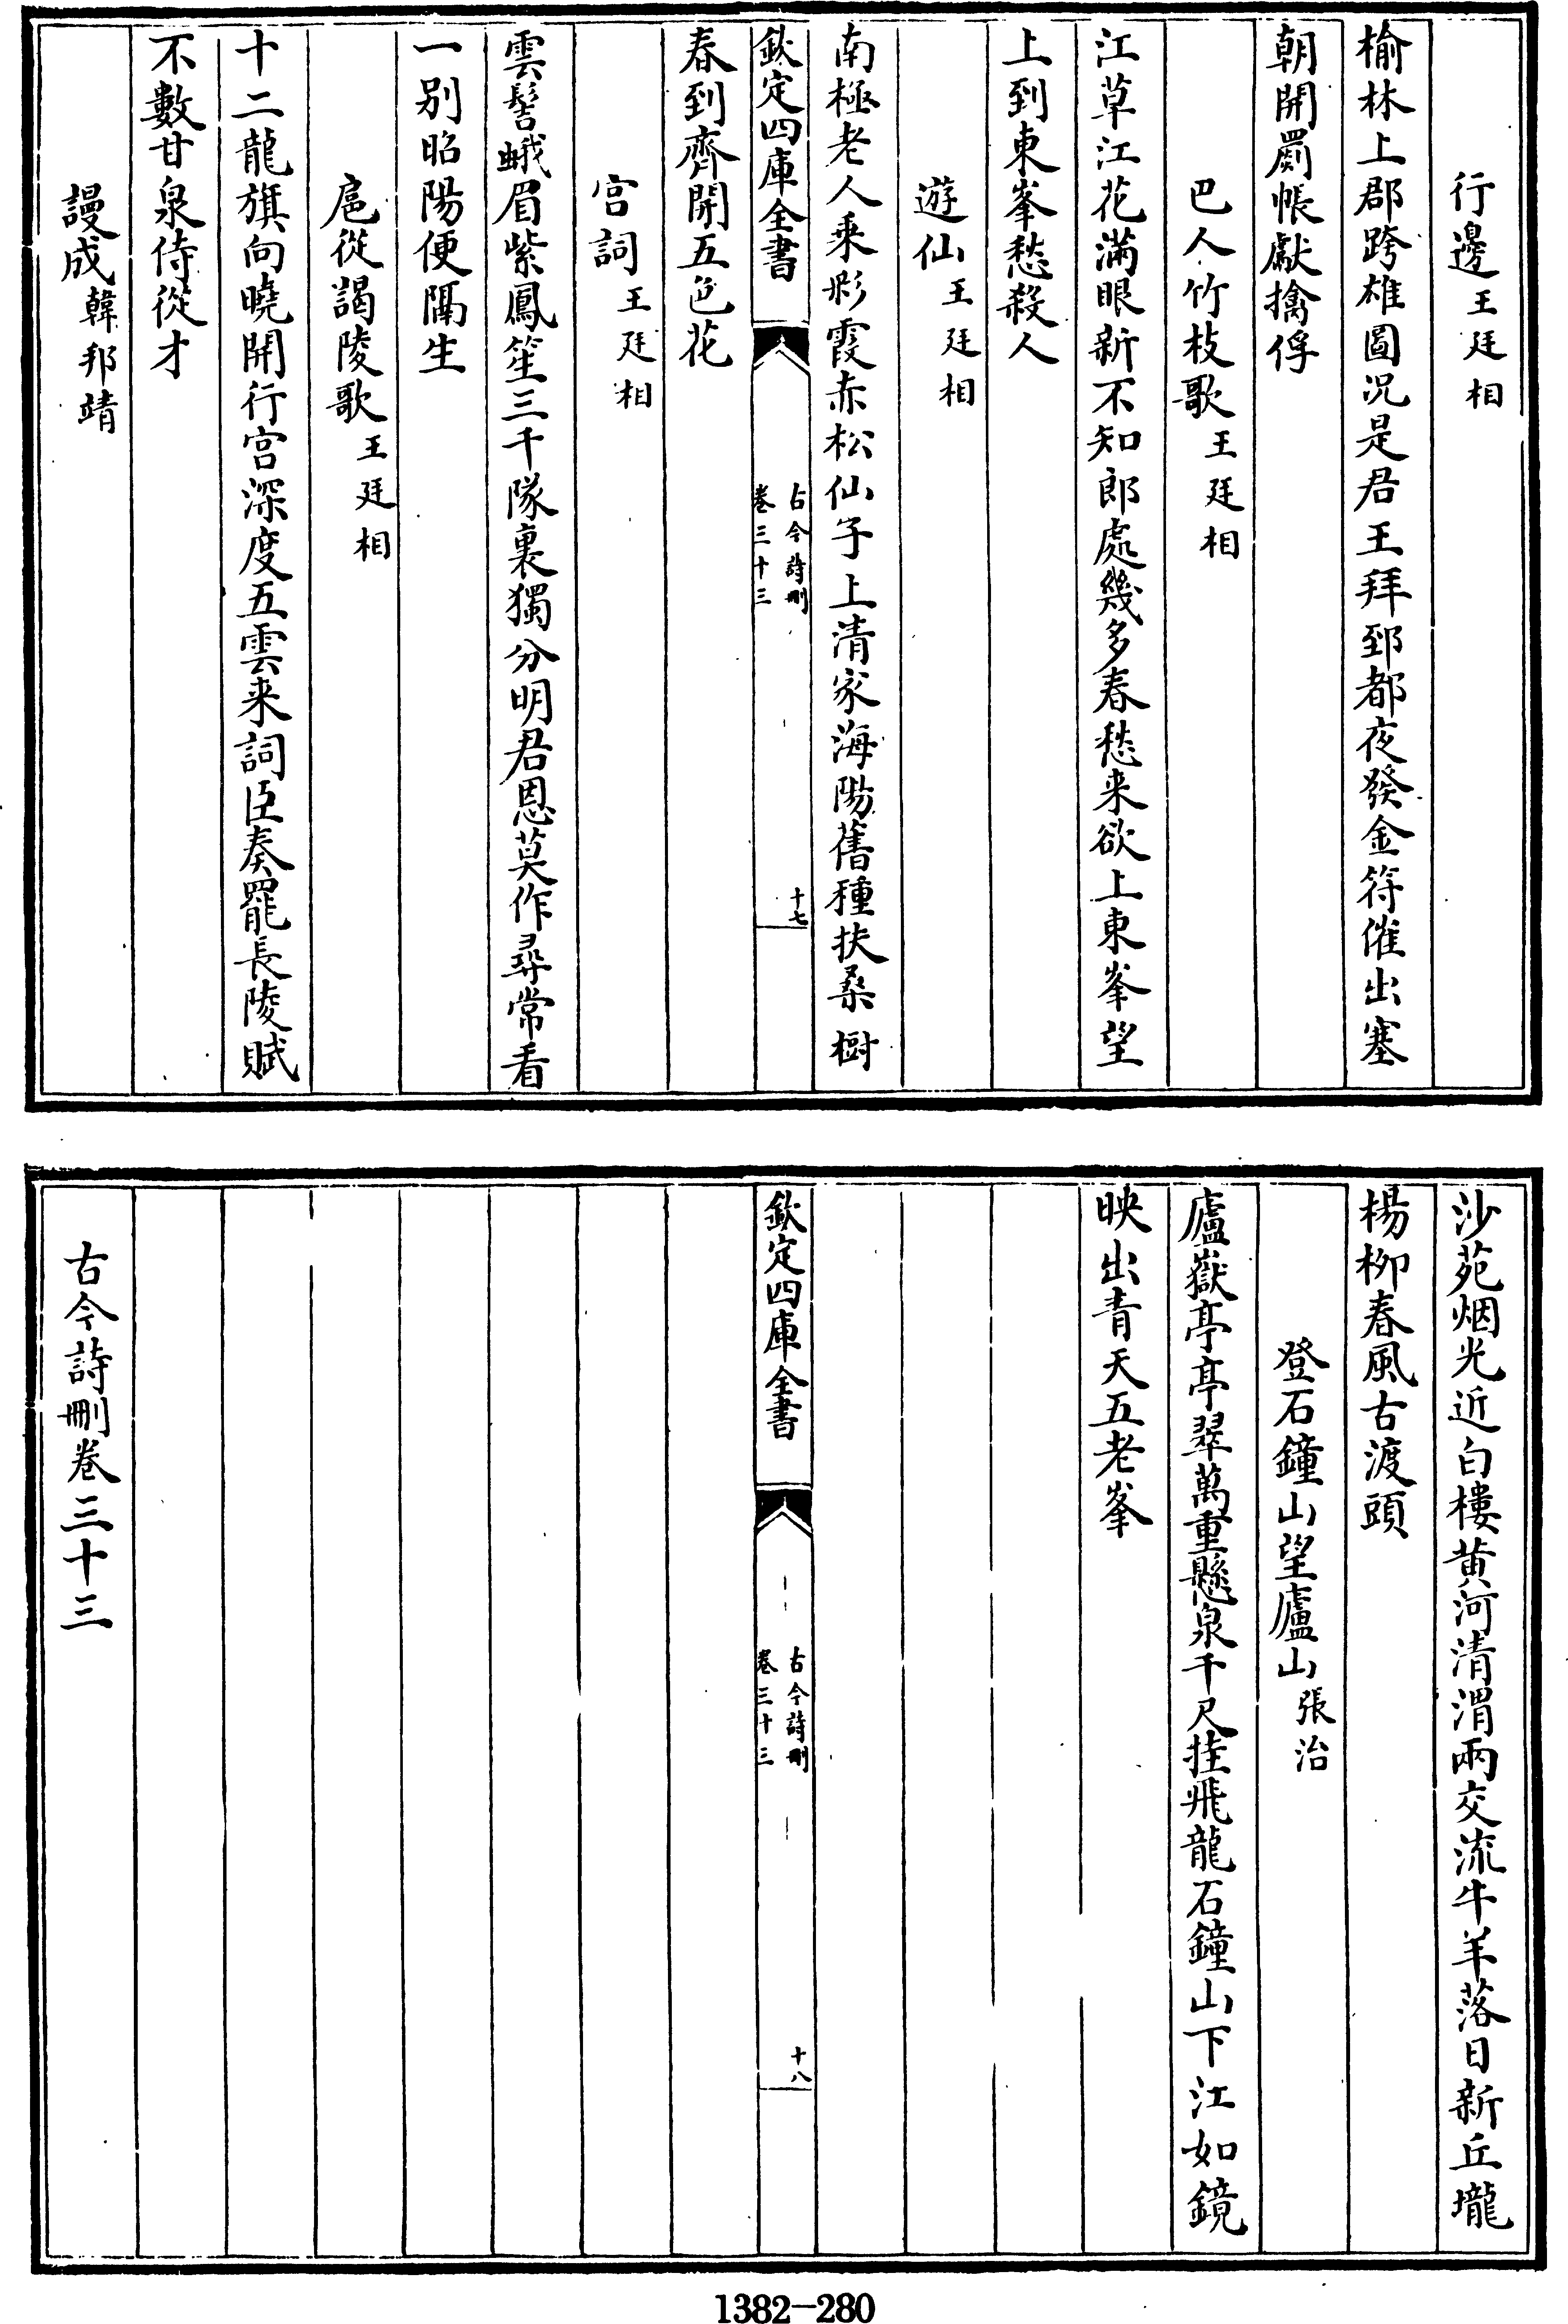 行邊王廷相
榆林上郡跨雄圖况是君王拜郅都夜發金符催出塞
朝開罽帳獻擒俘
巴人竹枝歌王廷相
江草江花滿眼新不知郎處幾多春愁来欲上東峯望
上到東峯愁殺人
遊仙王廷相
南極老人乘彩霞赤松仙子上清家海陽舊種扶桑樹
欽定四庫全書
古今詩刪
卷三十三
十七
春到齊開五色花
宫詞王廷相
雲髻蛾眉紫鳳笙三千隊裏獨分明君恩莫作尋常看
一别昭陽便隔生
扈從謁陵歌王廷相
十二龍旗向曉開行宫深度五雲来詞臣奏罷長陵賦
不數甘泉侍從才
謾成韓邦靖
沙苑烟光近白樓黄河清渭兩交流牛羊落日新丘壠
楊柳春風古渡頭
登石鐘山望廬山張治
廬嶽亭亭翠萬重懸泉千尺挂飛龍石鐘山下江如鏡
映出青天五老峯
欽定四庫全書
古今詩刪
卷三十三
十八
古今詩刪卷三十三
1382—280